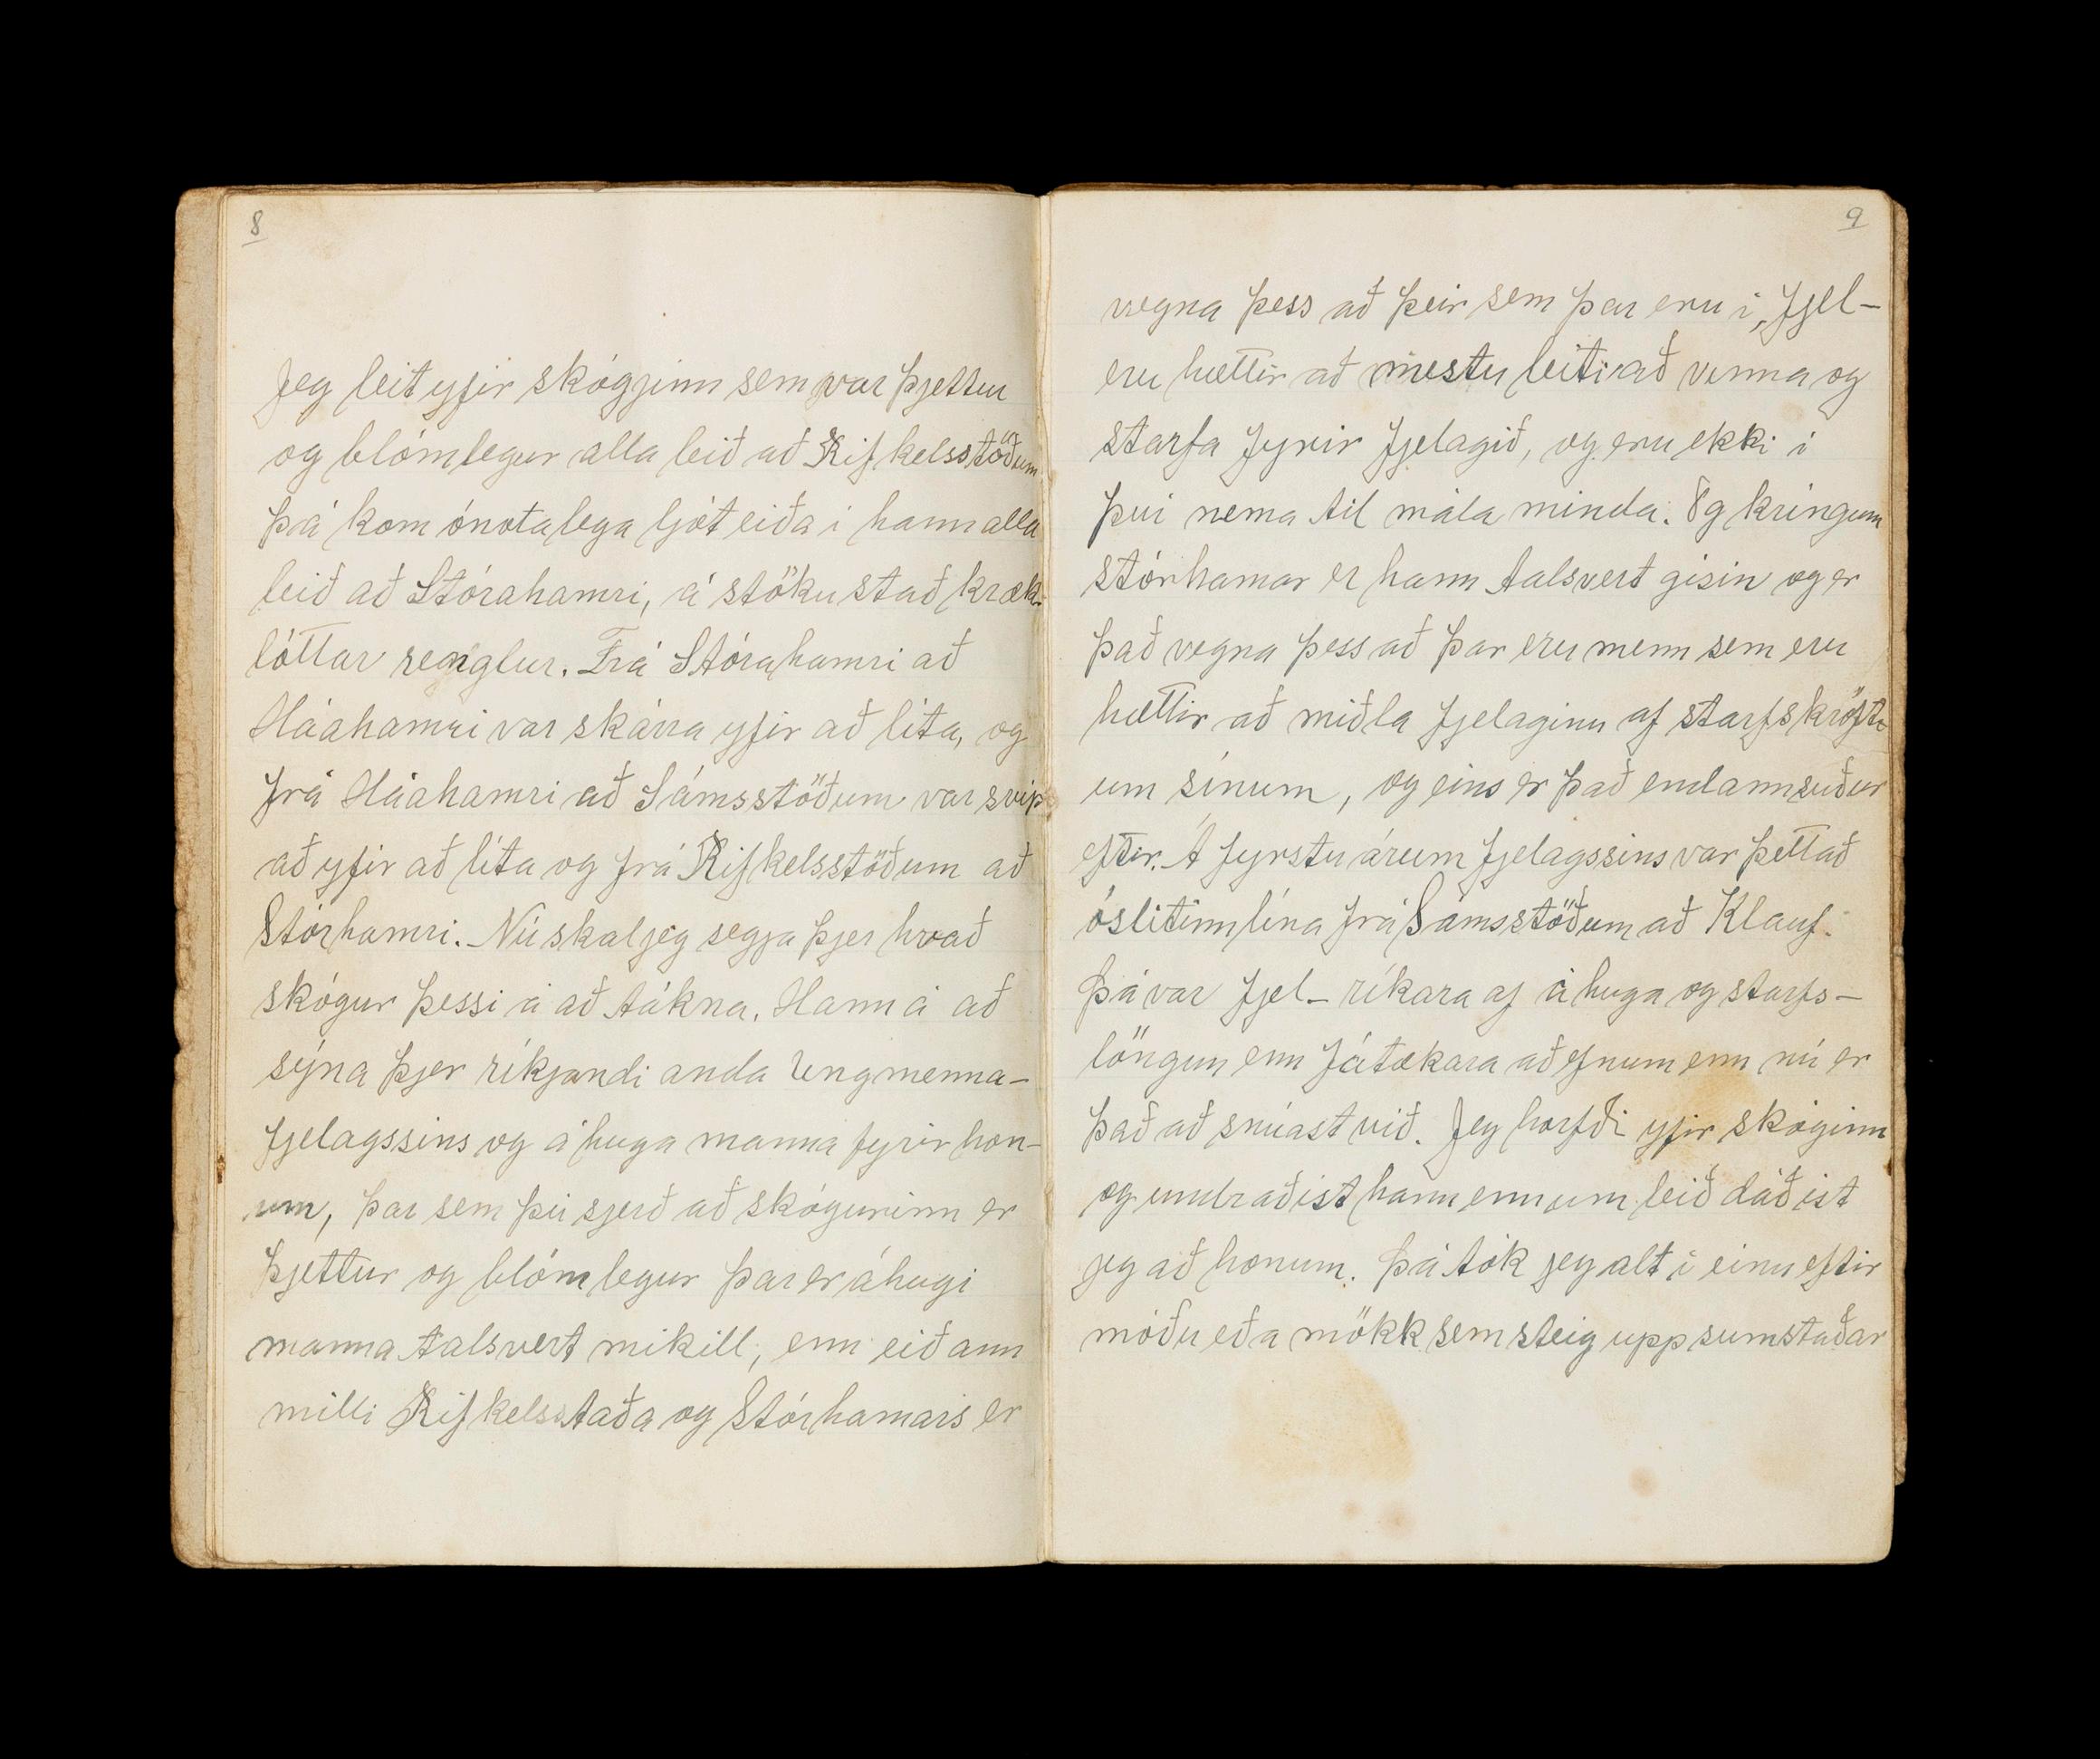 8
Jeg leit yfir skógginn sem var þjettur
og blómlegur alla leið að Rifkelsstöðum
þá kom ónotalega ljót eiða í hann alla
leið að Stórahamri, á stöku stað kræk-
lóttar renglur. Frá Stórahamri að
Háahamri var skárra yfir að líta, og
frá Háahamri að Sámsstöðum var svip
að yfir að líta og frá Rifkelsstöðum að
Stórhamri. Nú skal jeg segja þjer hvað
skógur þessi á að tákna. Hann á að
sýna þjer ríkjandi anda Ungmenna-
fjelagssins og áhuga manna fyrir hon-
um, þar sem þú sjerð að skógurinn er
þjettur og blómlegur þar er áhugi
manna talsvert mikill, enn eiðann
milli Rifkelsstaða og Stórhamars er
9
vegna þess að þeir sem þar eru í, Fjel-
eru hættir að mestu leiti að vinna og
starfa fyrir fjelagið, og eru ekki í
því nema til mála minda. Og kringum
Stórhamar er hann talsvert gisin og er
það vegna þess að þar eru menn sem eru
hættir að miðla fjelaginu af starfskröft
um sínum, og eins er það endann suður
eftir. Á fyrstu árum fjelagssins var þettað
óslitinn lína frá Sámsstöðum að Klauf.
Þá var Fjel- ríkara af áhuga og starfs-
löngun enn fátækara að efnum enn nú er
það að snúast við. Jeg horfði yfir skóginn
og undraðist hann enn um leið dáðist
jeg að honum. Þá tók jeg alt í einu eftir
móðu eða mökk sem steig upp sumstaðar